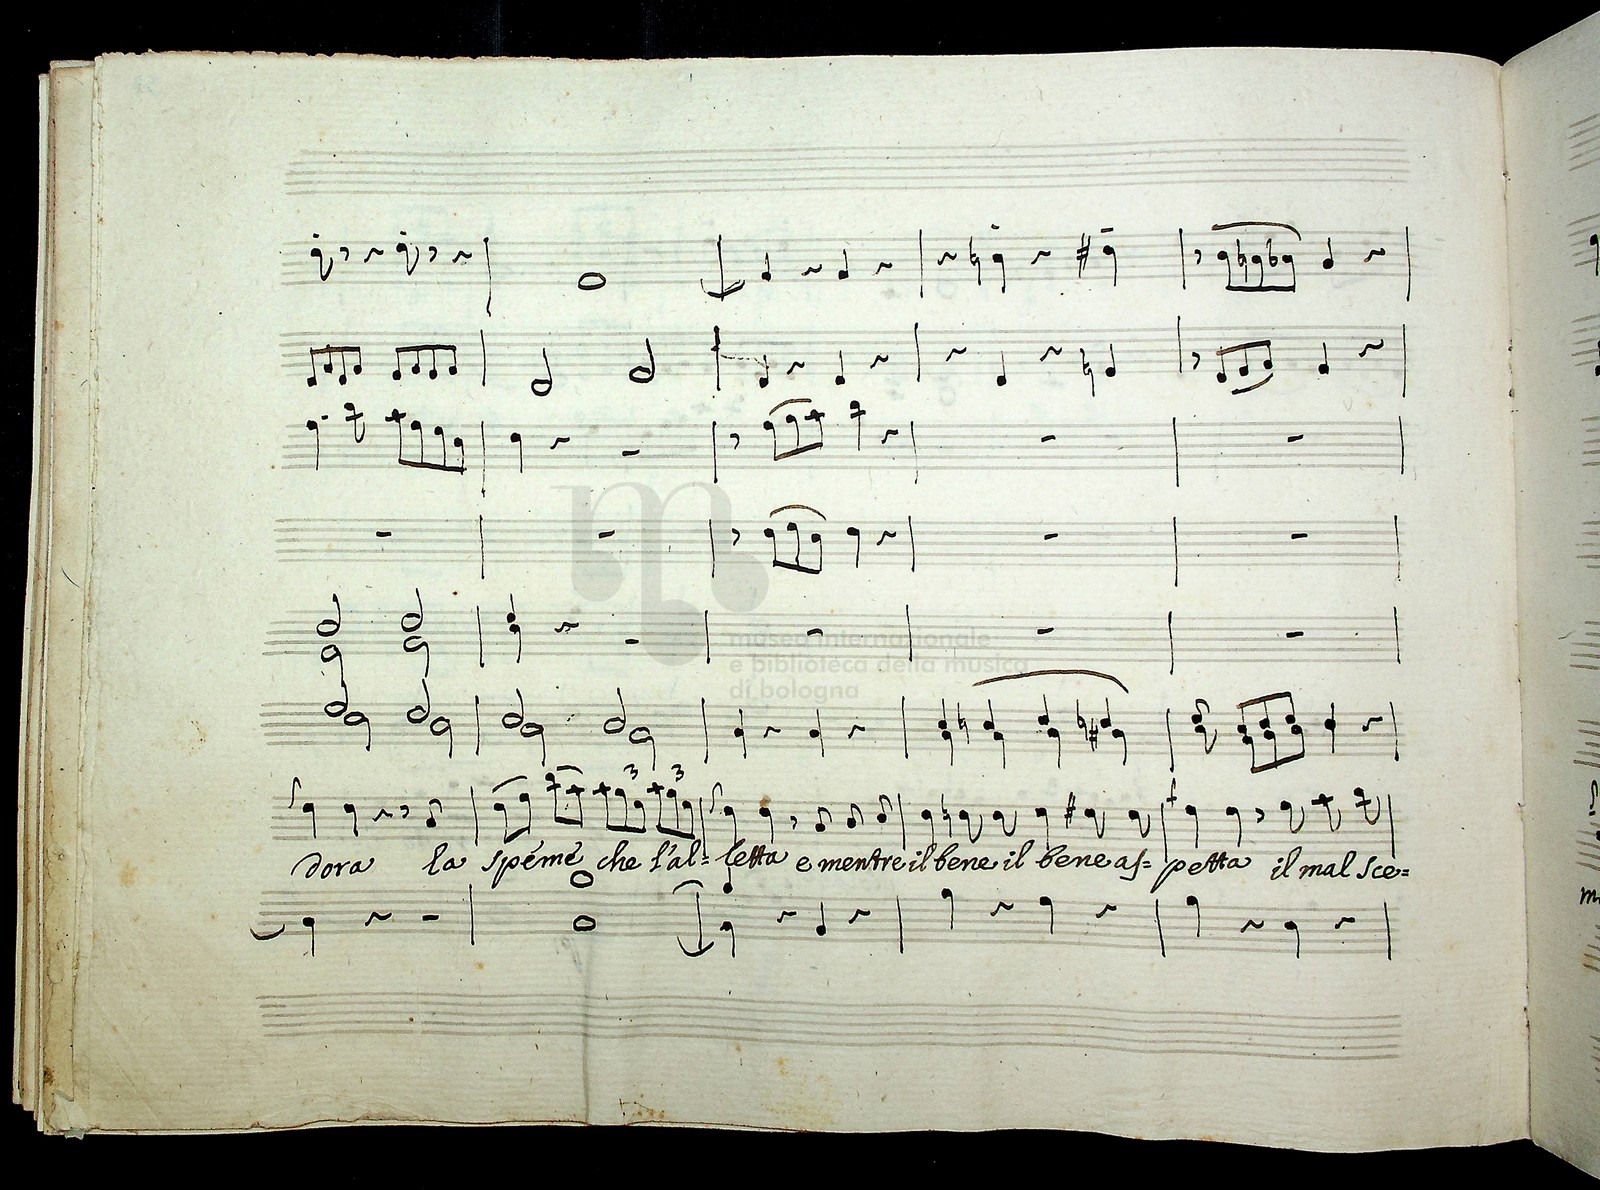 3 3
dora la speme che l'al= letta e mentre il bene il bene as= petta il mal sce=
museo internazionale
e biblioteca della musica
di bologna